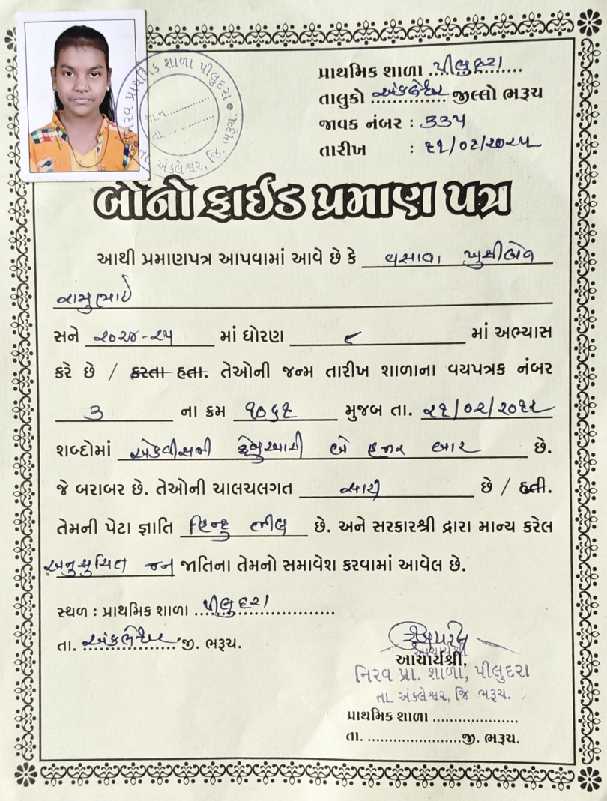 પ્રાથમિક શાળા પીલુદરા
તાલુકો અંકલેશ્વર જીલ્લો ભરૂચ
જાવક નંબર : ૩૩૫
તારીખ : ૨૧/૦૨/૨૦૨૫
બોનોફાઈડ પ્રમાણ પત્ર
આથી પ્રમાણપત્ર આપવામાં આવે છે કે વસાવા ખુશીબેન
રાજુભાઈ
સને ૨૦૨૪-૨૫ માં ધોરણ ૮ માં અભ્યાસ
કરે છે / કરતા હતા. તેઓની જન્મ તારીખ શાળાના વયપત્રક નંબર
૩ ના ક્રમ ૧૦૬૧ મુજબ તા. ૨૧/૦૨/૨૦૧૨
શબ્દોમાં એકવીસમી ફેબ્રુઆરી બે હજાર બાર છે.
જે બરાબર છે. તેઓની ચાલચલગત સારી છે / હતી.
તેમની પેટા જ્ઞાતિ હિન્દુ ભીલ છે. અને સરકારશ્રી દ્વારા માન્ય કરેલ
અનુસુચિત જન જાતિના તેમનો સમાવેશ કરવામાં આવેલ છે.
સ્થળ : પ્રાથમિક શાળા પીલુદરા
તા. અંકલેશ્વર જી. ભરૂચ.
આચાર્યશ્રી,
નિરવ પ્રા. શાળા, પીલુદરા
તા. અંકલેશ્વર, જિ ભરૂચ.
પ્રાથમિક શાળા
તા. જી. ભરૂચ.